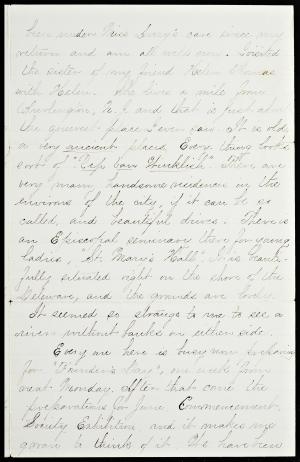 been under Miss Lucy's care since my
return and am all well now. I visited
the sister of my friend Helen Thomas
with Helen. She lives a mile from
Burlington, N.J. and that is just about
the queerest place I ever saw. It is old,
a very ancient place. Every thing looks
sort of "Rip Van Winklish". There are
very many handsome residences in the
environs of the city, if it can be so
called, and beautiful drives. There is
an Episcopal seminary there for young
ladies, "St. Mary's Hall". It is beauti-
fully situated right on the shore of the
Delaware, and the grounds are lovely.
It seemed so strange to me to see a
river without banks on either side.
Every one here is busy now preparing
for "Founder's Day", one week from
next Monday. After that come the
preparations for June Commencement,
Society Exhibition, and it makes me
groan to think of it. We have been